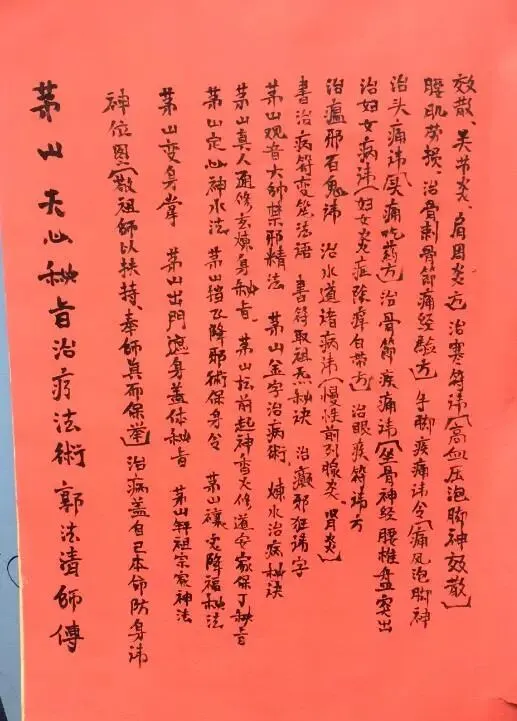 茅山天心秘旨治疗法術 郭法清師傅
神位图【敬祖師以扶持、奉師真而保举】治病盖自己本命防身讳
茅山变身掌 茅山出門遮身盖体秘旨 茅山解祖宗家神法
茅山定心神水法 茅山挡飞降邪術保身令 茅山禳灾降福秘法
茅山真人通修玄煉身秘旨、茅山坛前起神 天修道安家保丁秘旨
茅山观音大帅禁邪精法 茅山金字治病術、煉水治病秘诀
書治病符变笔法语 書符取祖炁秘诀 治癫邪狂讳字
治瘟邪百鬼讳 治水道诸病讳【慢性前列腺炎、肾炎】
治妇女病讳【妇女炎症除瘴白带方】治眼疾符讳方
治头痛讳【头痛吃药方】治骨節疾痛讳【坐骨神经腰椎盘突出
腰肌劳损、治骨刺骨節痛经驗方】手脚疾痛讳令【痛风泡脚神
效散、关节炎、肩周炎方】治寒符讳【高血压泡脚神效散】